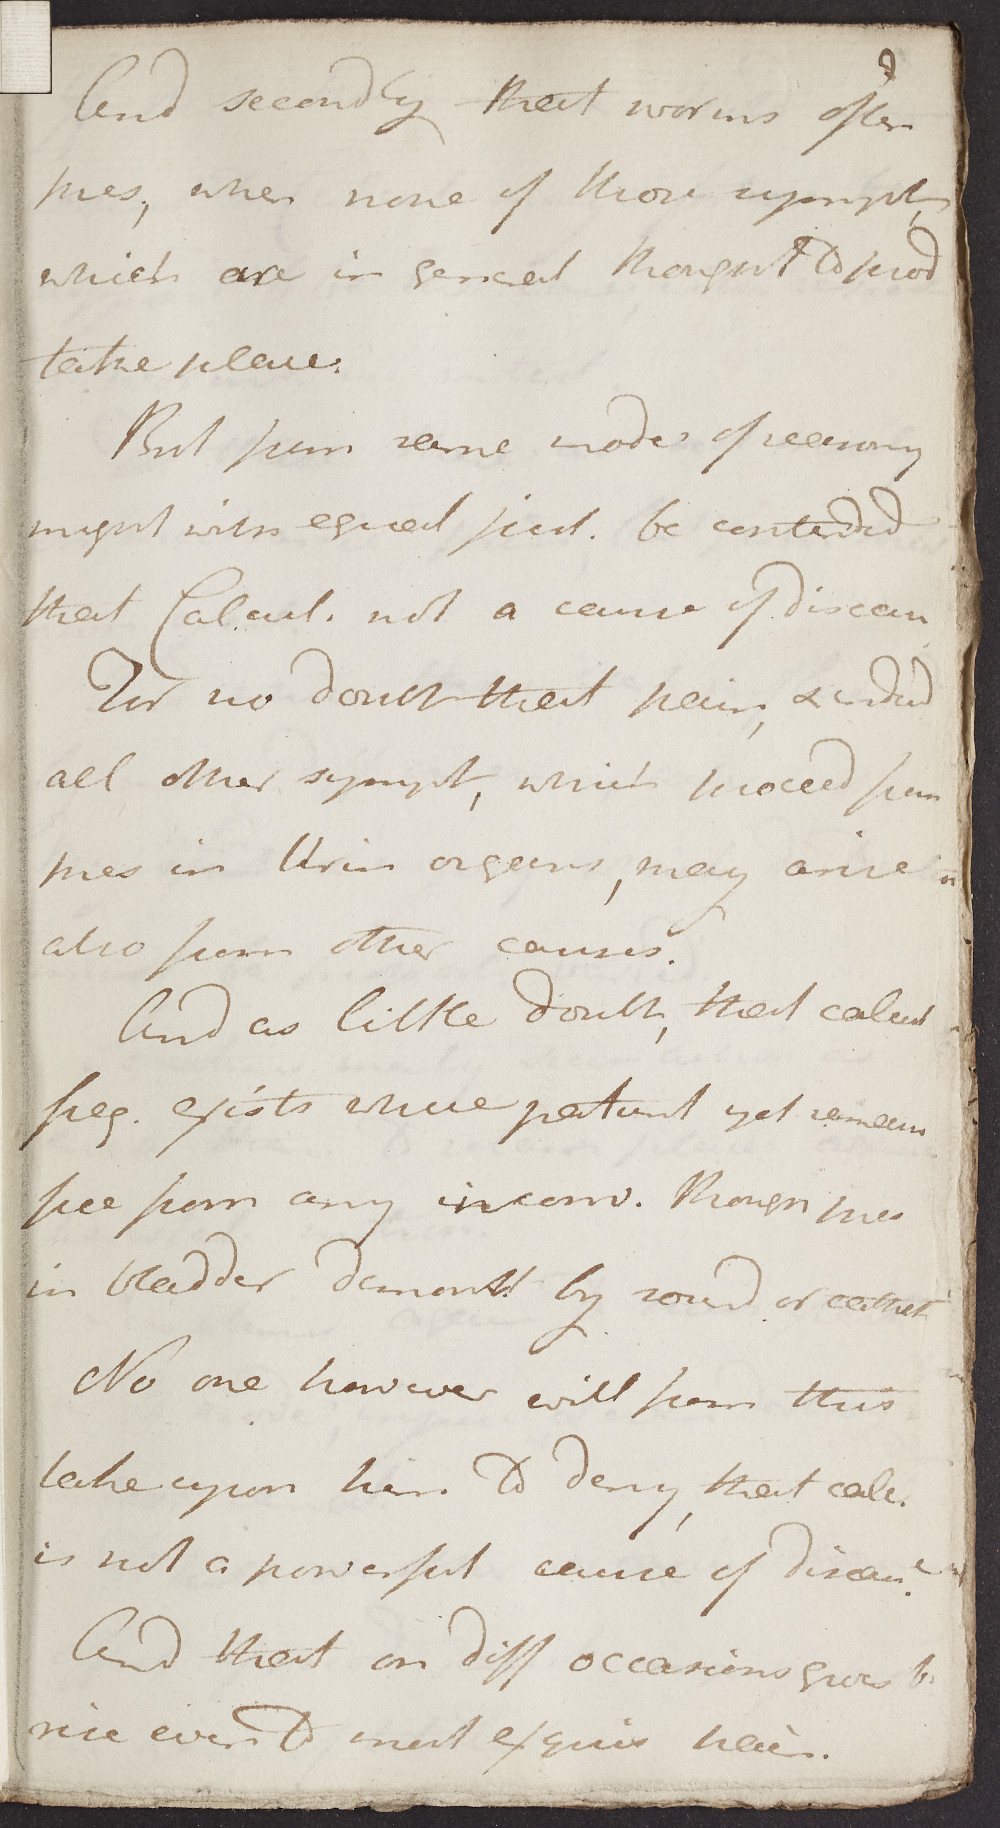 9
And secondly that worms often
pres, when none of those sympt,
which are in general thought to prod
take place.
But from same mode of reasong
might with equal just. be contended
that Calcul. not a cause of disease
For no doubt that pain, & indeed
all other sympt, which proceed from
pres in Urin organs, may arise
also from other causes.
And as little doubt, that calcul
freq. exists where patient yet remains
free from any inconv. though pres
in bladder demonst. by sound or cathet
No one however will from this
take upon him to deny, that calc.
is not a powerful cause of disease.
And that on diff occasions gives
rise even to most exquis pain.